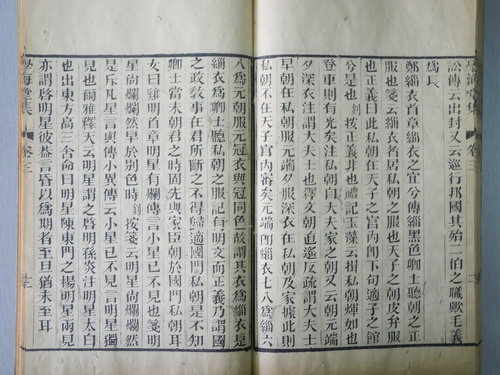 學海堂集
卷三
訟傳云出封又云巡行邦國其殆二伯之職歟毛義
爲長
鄭緇衣首章緇衣之宜兮傳緇黑色卿士聽朝之正
服也箋云緇衣者居私朝之服也天子之朝皮弁服
也正義曰此私朝在天子之宮內卽下句適子之館
兮是也 釗按正義非也禮記玉藻云揖私朝煇如也
登車則有光矣注私朝自大夫家之朝又云朝元端
夕深衣注謂大夫士也釋文朝直遙反疏謂大夫士
早朝在私朝服元端夕服深衣在私朝及家據此則
私朝不在天子宮內審矣元端卽緇衣七入爲緇六
入爲元朝服元冠衣與冠同色故謂其衣爲緇衣是
緇衣爲大夫私朝之服記有明文而正義乃謂國
之政敎事在君所斷之不得歸適國門私朝是不知
卿士當未朝君之時固先與家臣朝於國門私朝耳
女曰雞鳴首章明星有爛傳言小星已不見也箋明
星尚爛爛然早於別色時 釗按箋云明星尚爛爛然
是斥凡星言與傳小異傳云小星已不見言明星獨
見也爾雅釋天云明星謂之啓明孫炎注明星太白
也出東方高三舍命曰明星陳東門之楊明星兩見
亦謂啓明星彼益言昏以爲期者至旦猶未至耳
學海堂集
卷三